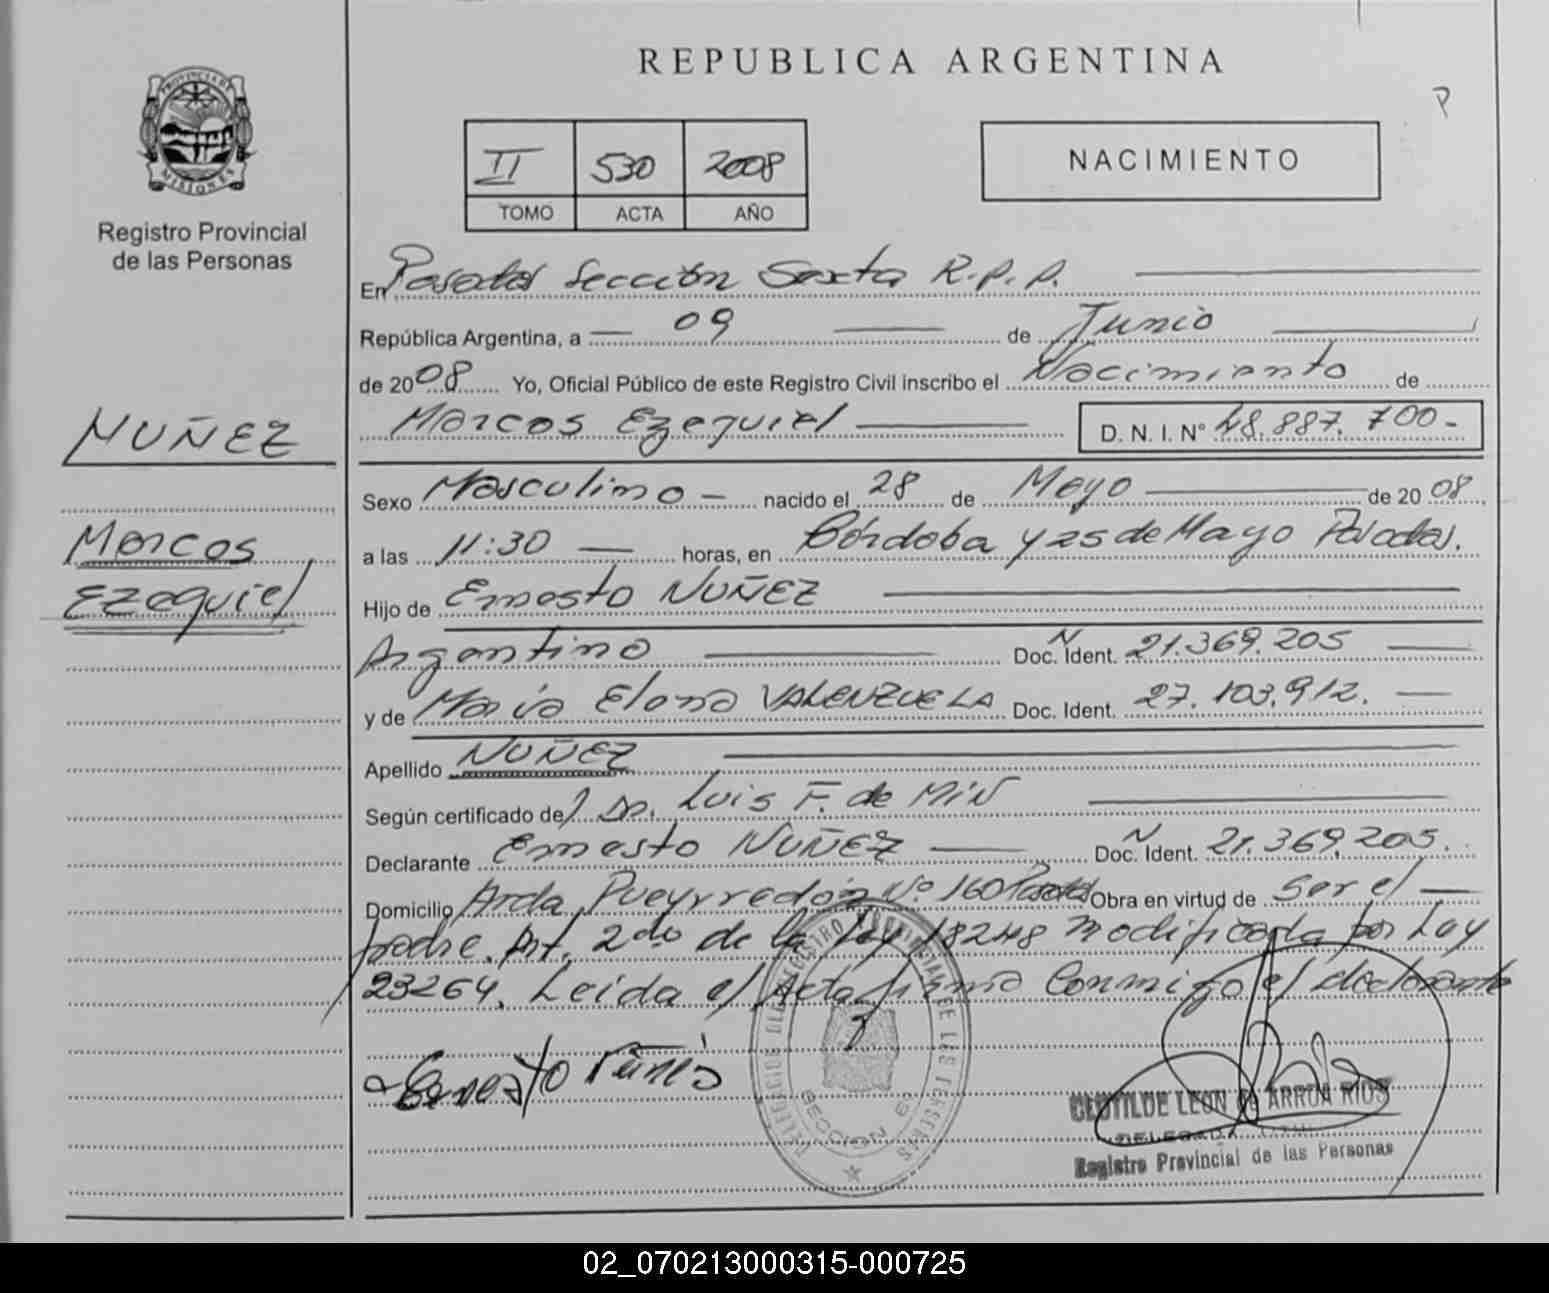 REPUBLICA ARGENTINA
P
PROVINCIA DE MISIONES
Registro Provincial
de las Personas
II 530 2008
TOMO ACTA AÑO
NACIMIENTO
En Posadas Sección Sexta R.P.P.
República Argentina, a 09 de Junio
de 2008 Yo, Oficial Público de este Registro Civil inscribo el Nacimiento de
Marcos Ezequiel D. N. I. N° 48.887.700-
NUÑEZ
Marcos
Ezequiel
Sexo Masculino - nacido el 28 de Mayo de 20 08
a las 11:30 horas, en Córdoba y 25 de Mayo Posadas.
Hijo de Ernesto NUÑEZ
Argentino Doc. Ident. N 21.369.205
y de María Elena VALENZUELA Doc. Ident. 27.103.912.
Apellido NUÑEZ
Según certificado de Dr. Luis F. de
Declarante Ernesto NUÑEZ Doc. Ident. N 21.369.205.
Domicilio Avda Pueyrredón Nº 160 Posadas Obra en virtud de Ser el
padre. Art. 2do de la Ley 18248 modificada por Ley
23264. Leída el Acta firma Conmigo el declarante
Ernesto
DELEGACION DEL REGISTRO PROVINCIAL DE LAS PERSONAS
SECCION 6ª
CLOTILDE LEON de ARRUA RIOS
DELEGADA
Registro Provincial de las Personas
02_070213000315-000725